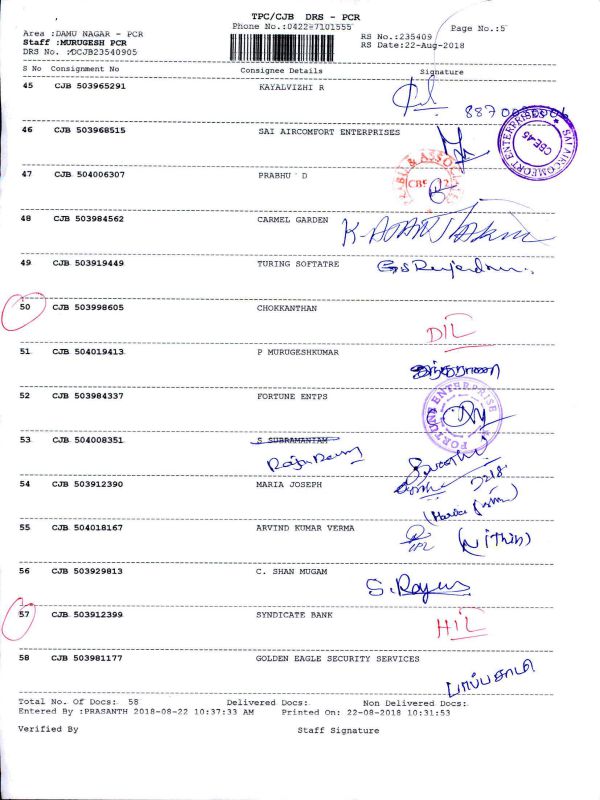 TPC/CJB DRS - PCR
Phone No.:0422-7101555
Page No.:5
Area :DAMU NAGAR - PCR
RS No.:235409
Staff :MURUGESH PCR
RS Date:22-Aug-2018
DRS No. :DCJB23540905
S No Consignment No Consignee Details Signature
45 CJB 503965291 KAYALVIZHI R
46 CJB 503968515 SAI AIRCOMFORT ENTERPRISES
SAI AIRCOMFORT ENTERPRISES
CBE-45
47 CJB 504006307 PRABHU D
48 CJB 503984562 CARMEL GARDEN
49 CJB 503919449 TURING SOFTATRE
50 CJB 503998605 CHOKKANTHAN
DIL
51 CJB 504019413 P MURUGESHKUMAR
52 CJB 503984337 FORTUNE ENTPS
FORTUNE ENTERPRISE
53 CJB 504008351 S SUBRAMANIAM
54 CJB 503912390 MARIA JOSEPH
55 CJB 504018167 ARVIND KUMAR VERMA
(Nithin)
56 CJB 503929813 C. SHAN MUGAM
57 CJB 503912399 SYNDICATE BANK
HIL
58 CJB 503981177 GOLDEN EAGLE SECURITY SERVICES
Total No. Of Docs: 58 Delivered Docs: Non Delivered Docs:
Entered By :PRASANTH 2018-08-22 10:37:33 AM Printed On: 22-08-2018 10:31:53
Verified By Staff Signature